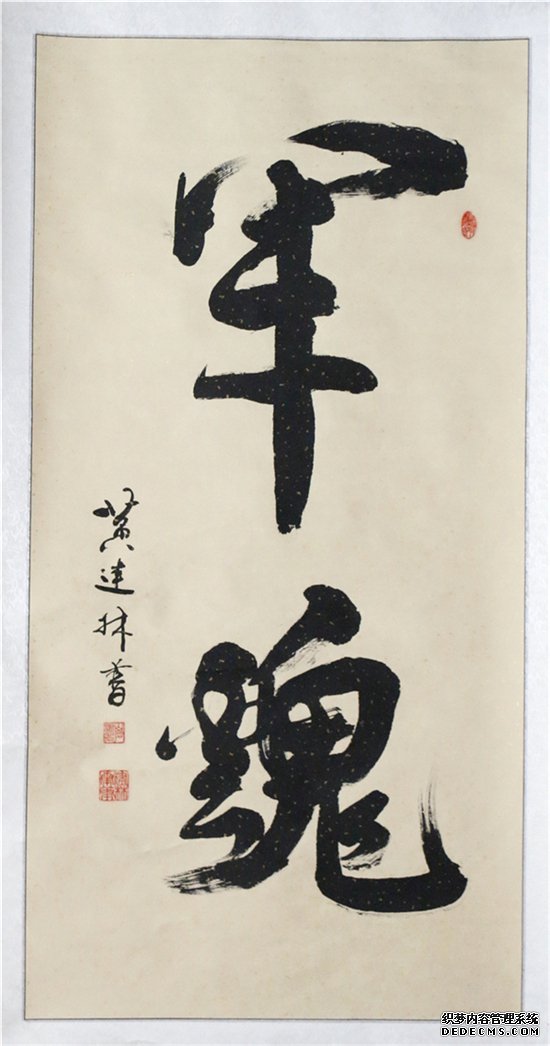 军魂
黄连林书
织梦内容管理系统
DEDECMS.COM